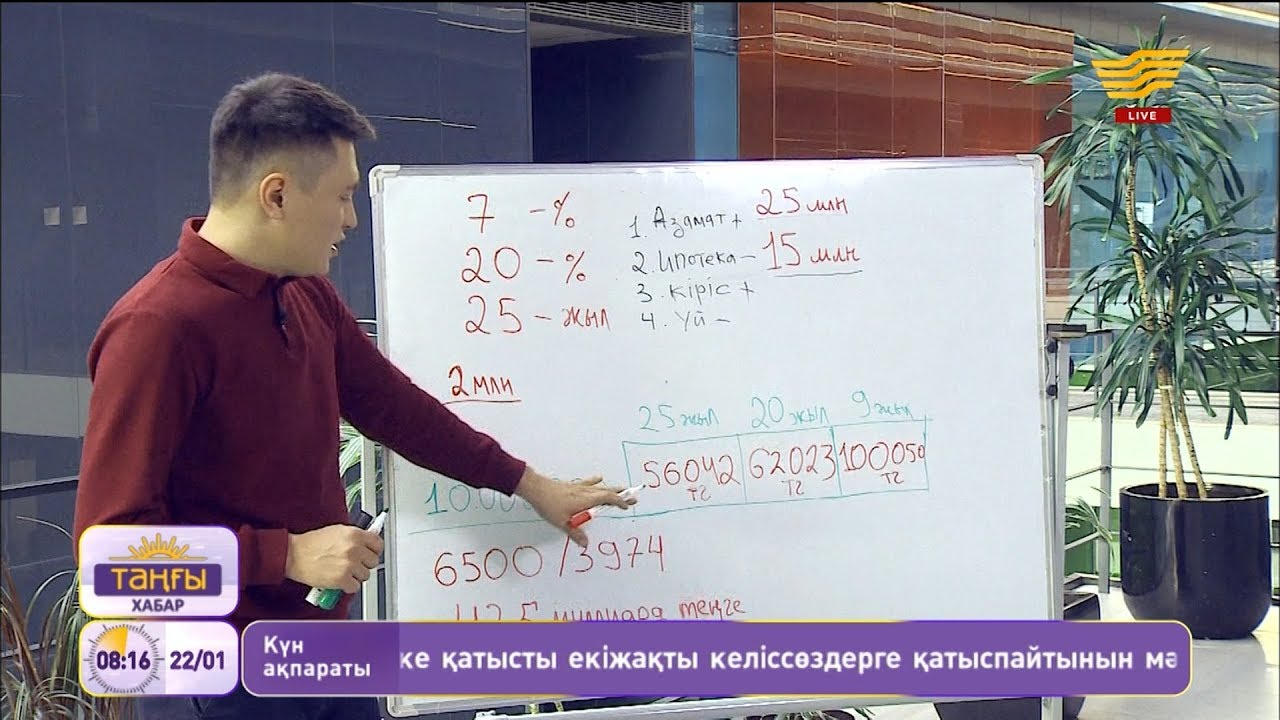 LIVE
7 -%
20 -%
25 - жыл
1. Азамат + 25 млн
2. Ипотека - 15 млн
3. кіріс +
4. үй -
2 млн
25 жыл 20 жыл 9 жыл
56042 тг 62023 тг 100050 тг
6500/3974
теңге
таңғы
ХАБАР
08:16 22/01
Күн
ақпараты
ке қатысты екіжақты келіссөздерге қатыспайтынын мә